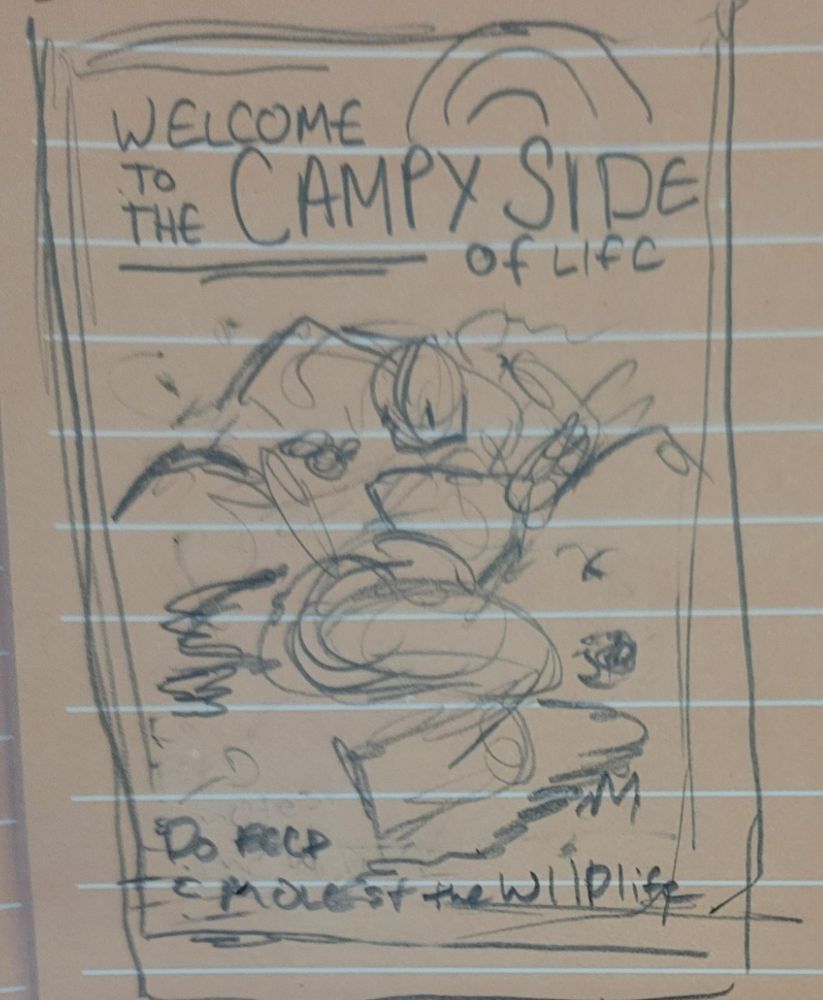 WELCOME
TO
THE CAMPY SIDE
OF LIFE
DO
MOLEST the WILDlife